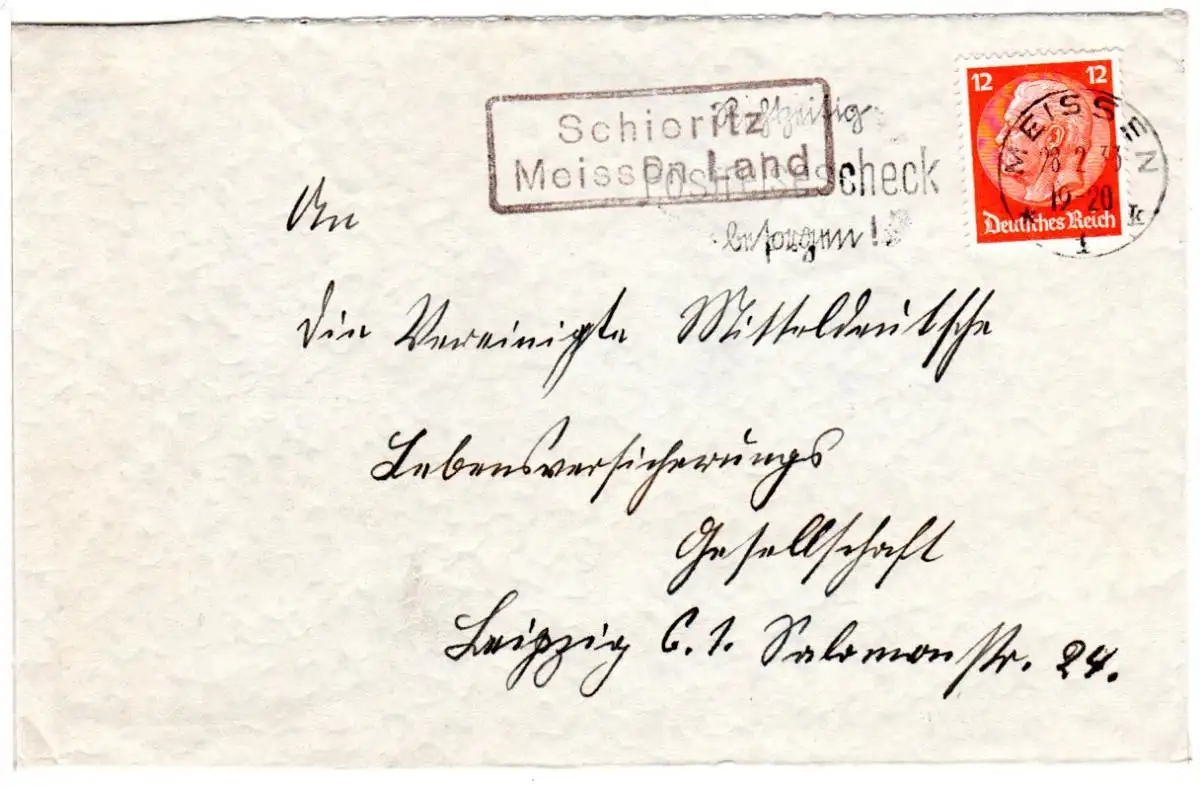 Schieritz
Meissen Land
Rechtzeitig
Postreisescheck
besorgen!
12 12
MEISSEN
28.2.33
19-20
Deutsches Reich
1
An
die Vereinigte Mitteldeutsche
Lebensversicherungs
Gesellschaft
Leipzig C. 1. Salomonstr. 24.